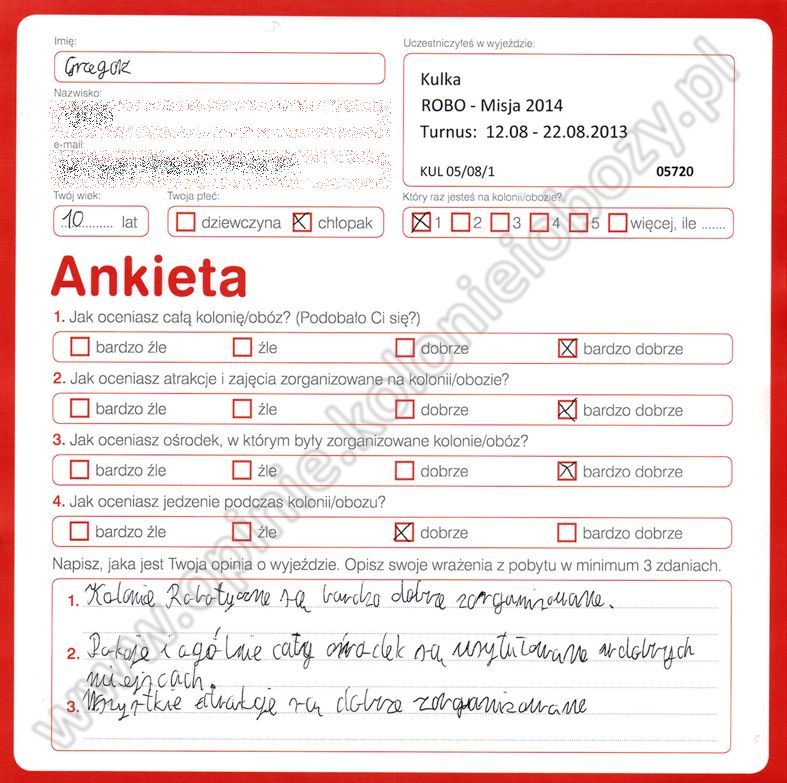 Imię:
Grzegorz
Uczestniczyłeś w wyjeździe:
Kulka
ROBO - Misja 2014
Turnus: 12.08 - 22.08.2013
KUL 05/08/1 05720
Nazwisko:
e-mail:
Twój wiek:
10 lat
Twoja płeć:
dziewczyna chłopak
Który raz jesteś na kolonii/obozie?
1 2 3 4 5 więcej, ile .......
Ankieta
1. Jak oceniasz całą kolonię/obóz? (Podobało Ci się?)
bardzo źle źle dobrze bardzo dobrze
2. Jak oceniasz atrakcje i zajęcia zorganizowane na kolonii/obozie?
bardzo źle źle dobrze bardzo dobrze
3. Jak oceniasz ośrodek, w którym były zorganizowane kolonie/obóz?
bardzo źle źle dobrze bardzo dobrze
4. Jak oceniasz jedzenie podczas kolonii/obozu?
bardzo źle źle dobrze bardzo dobrze
Napisz, jaka jest Twoja opinia o wyjeździe. Opisz swoje wrażenia z pobytu w minimum 3 zdaniach.
1. Kolonie Robotyczne są bardzo dobrze zorganizowane.
2. Pokoje i ogólnie cały ośrodek są usytułowane w dobrych
miejscach.
3. Wszystkie atrakcje są dobrze zorganizowane
www.opinie.kolonieiobozy.pl